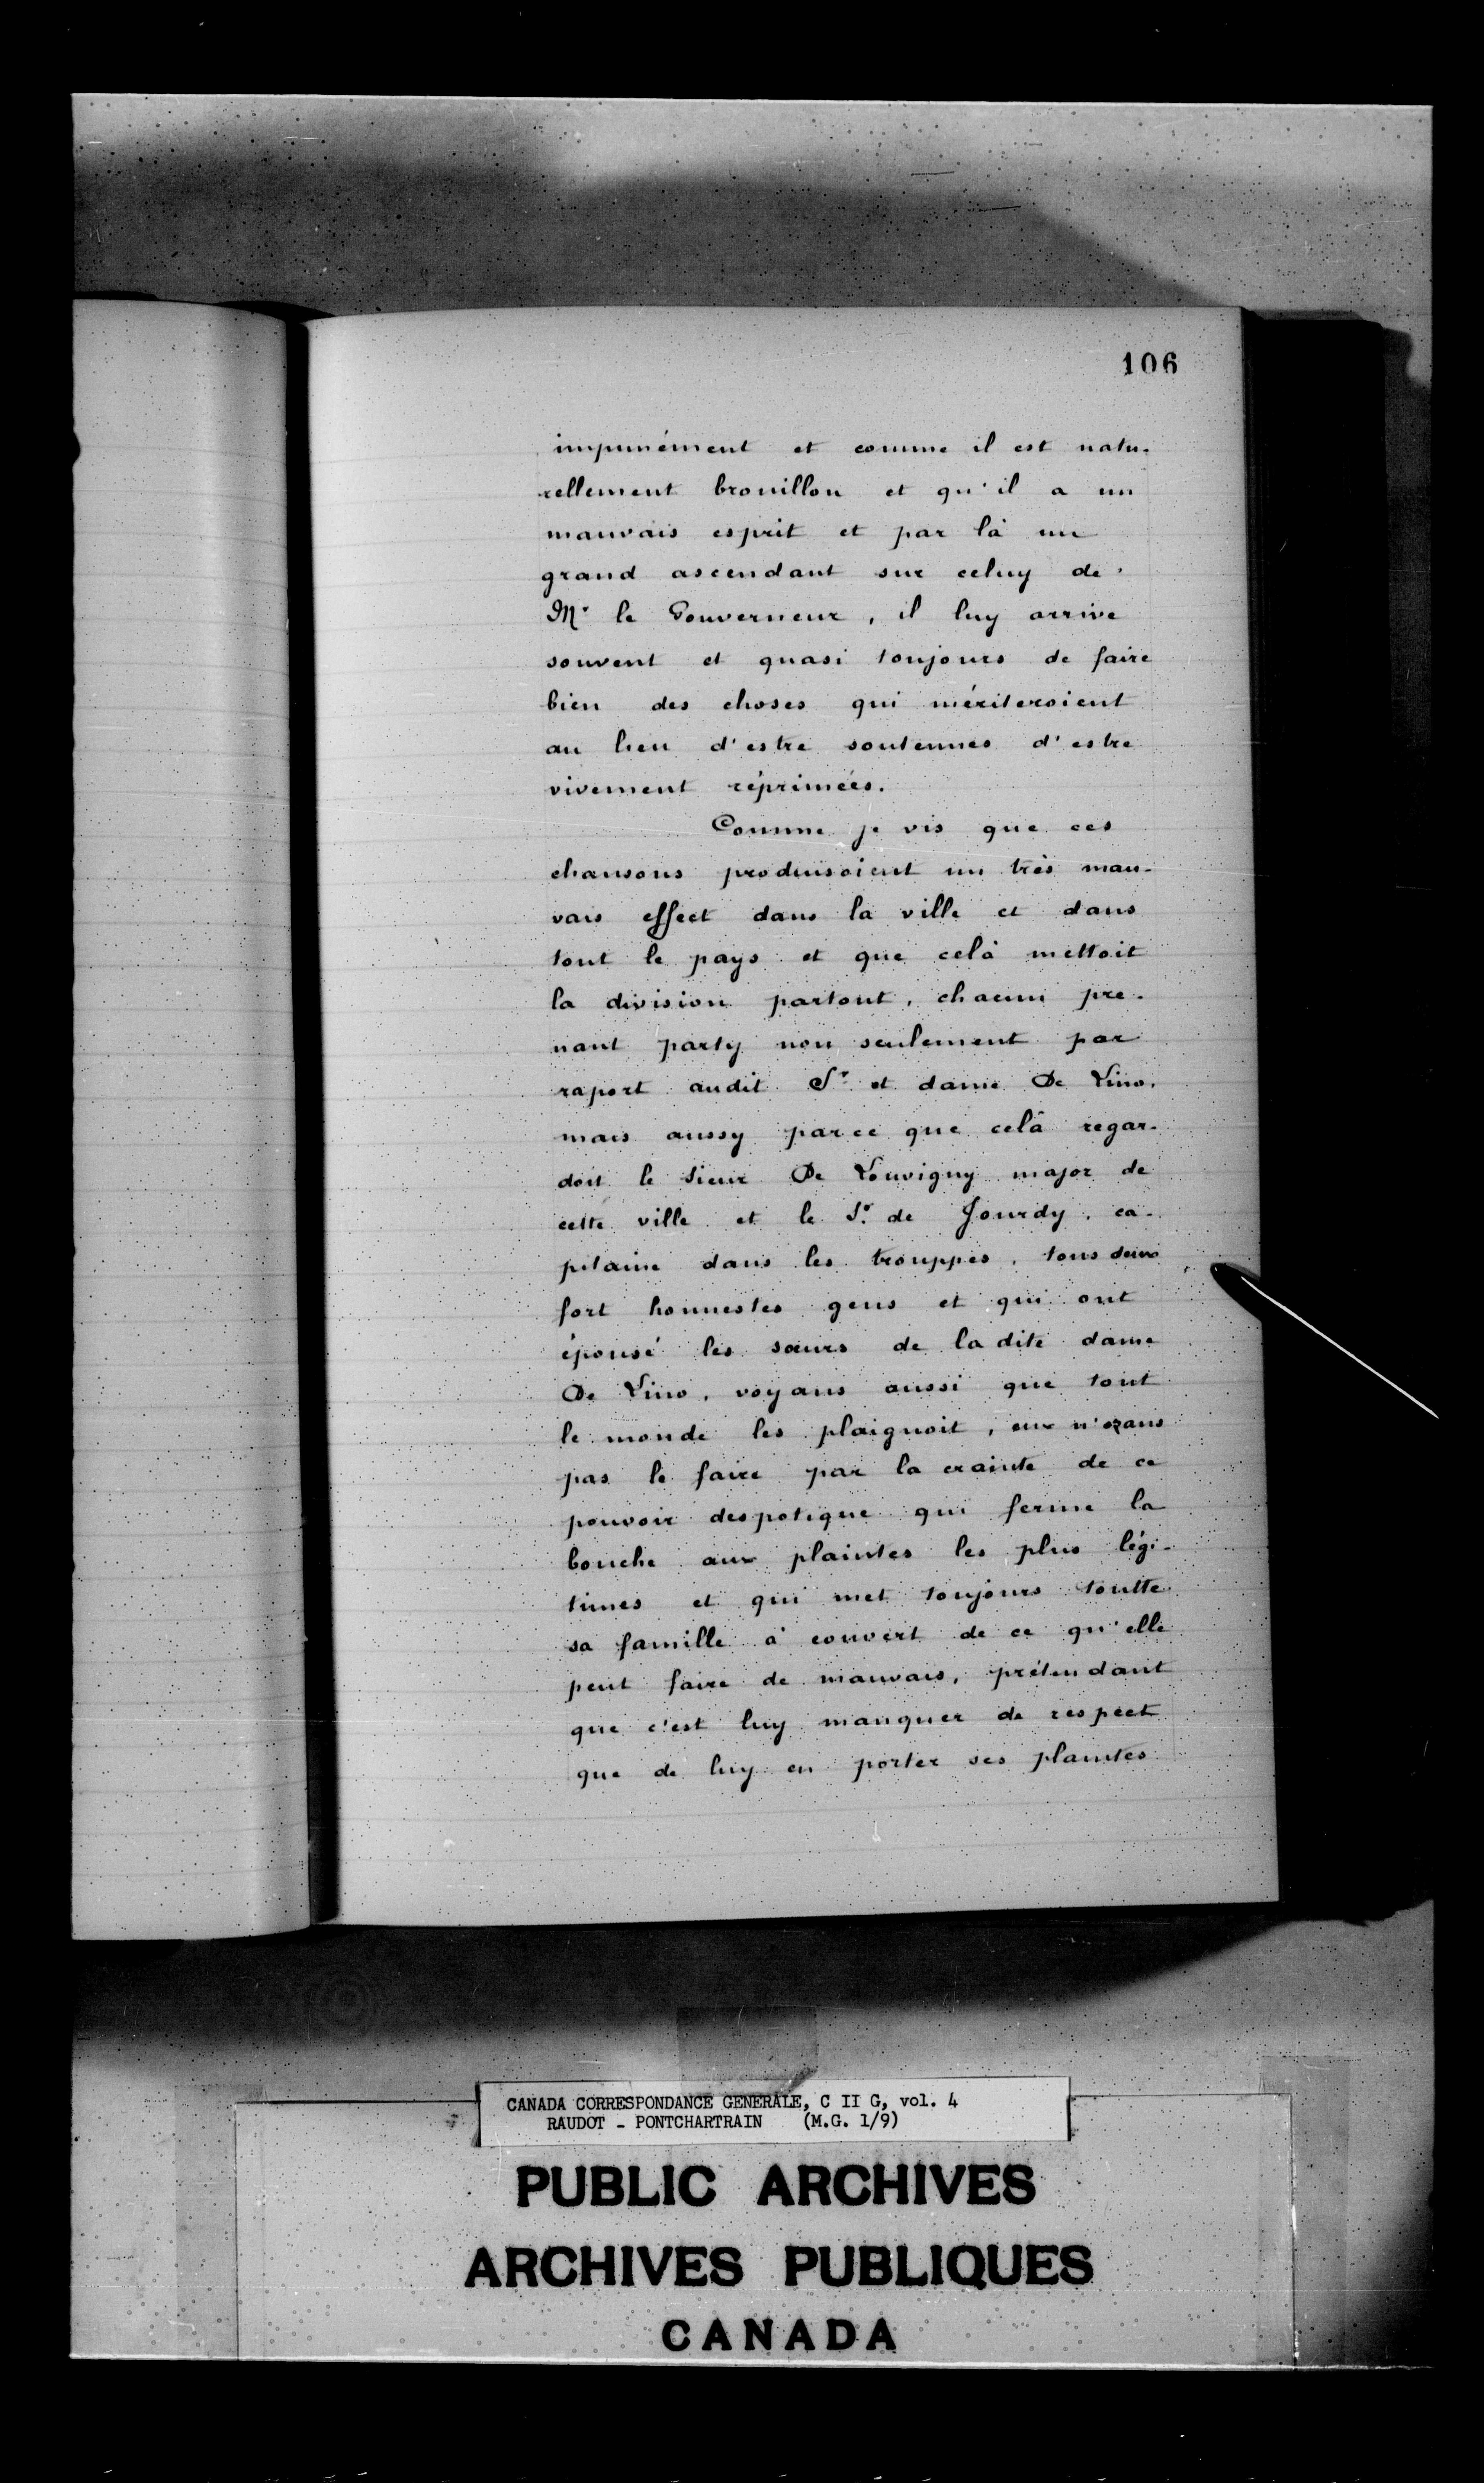 106
impunément et comme il est natu-
rellement brouillon et qu'il a un
mauvais esprit et par là un
grand ascendant sur celuy de
Mr le Gouverneur, il luy arrive
souvent et quasi toujours de faire
bien des choses qui mériteroient
au lieu d'estre soutenues d'estre
vivement réprimées.
Comme je vis que ces
chansons produisoient un très mau-
vais effect dans la ville et dans
tout le pays et que celà mettoit
la division partout, chacun pre-
nant party non seulement par
raport audit Sr et dame De Lino,
mais aussy parce que celà regar-
doit le sieur De Louvigny major de
cette ville et le Sr de Jourdy, ca-
pitaine dans les trouppes, tous deux
fort honnestes gens et qui ont
épousé les sœurs de la dite dame
De Lino, voyans aussi que tout
le monde les plaignoit, eux n'ozans
pas le faire par la crainte de ce
pouvoir despotique qui ferme la
bouche aux plaintes les plus légi-
times et qui met toujours toutte
sa famille à couvert de ce qu'elle
peut faire de mauvais, prétendant
que c'est luy manquer de respect
que de luy en porter ses plaintes
CANADA CORRESPONDANCE GENERALE, C II G, vol. 4
RAUDOT - PONTCHARTRAIN (M.G. 1/9)
PUBLIC ARCHIVES
ARCHIVES PUBLIQUES
CANADA